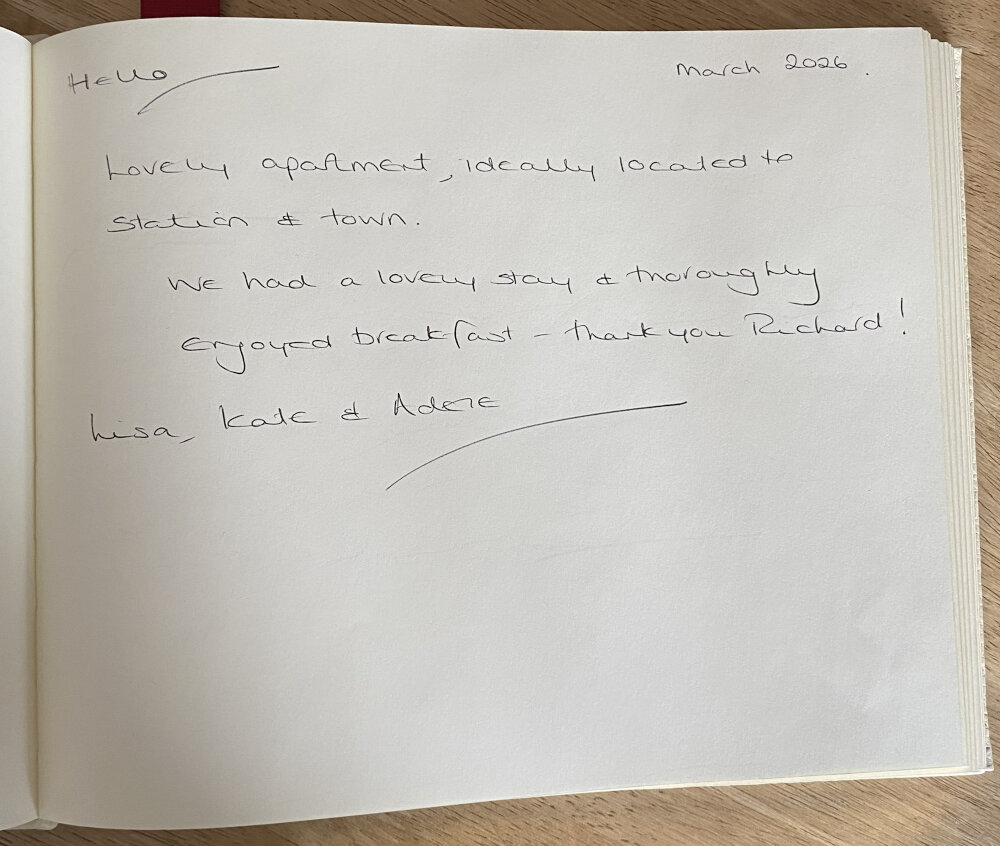 Hello
March 2026.
Lovely apartment, ideally located to
station & town.
We had a lovely stay & thoroughly
enjoyed breakfast - thank you Richard!
Lisa, Kate & Adele